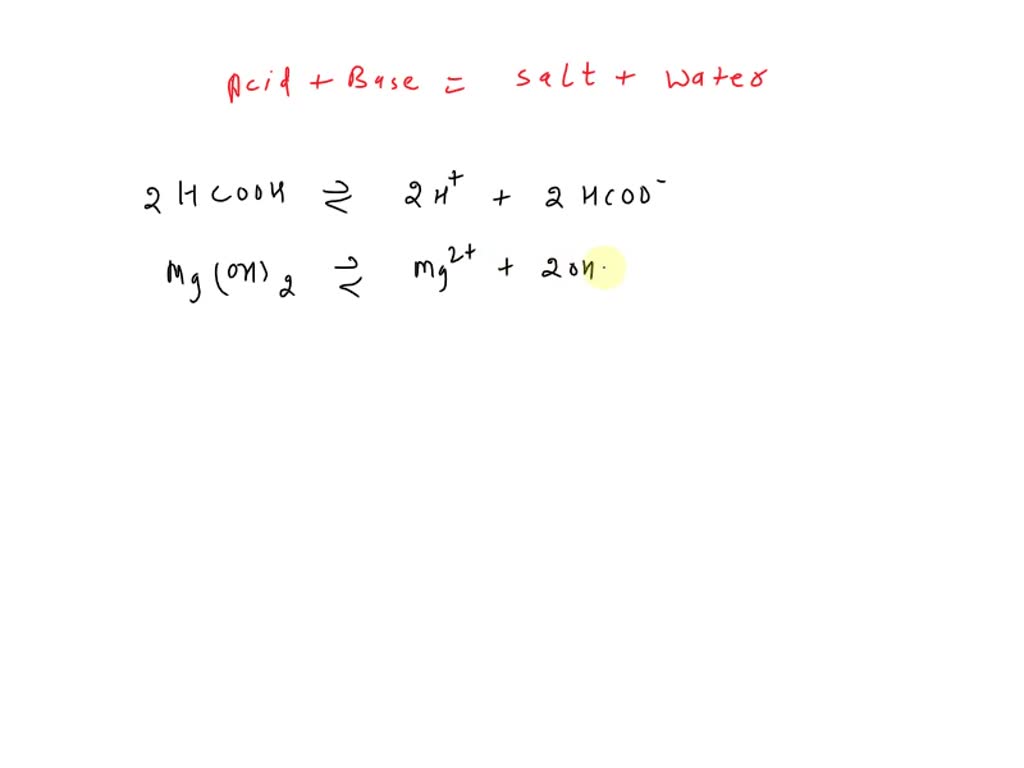 Acid + Base = salt + water
2 HCOOH ⇌ 2H⁺ + 2 HCOO⁻
Mg(OH)₂ ⇌ Mg²⁺ + 2OH·